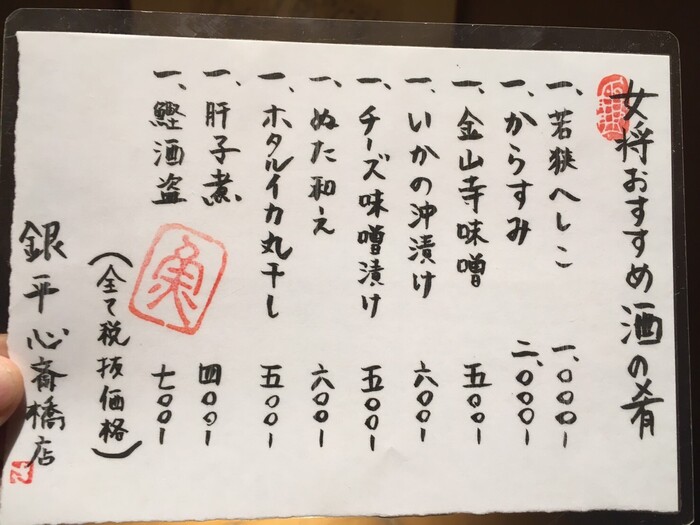 女将おすすめ酒の肴
一、若狭へしこ 一、〇〇〇ー
一、からすみ 二、〇〇〇ー
一、金山寺味噌 五〇〇ー
一、いかの沖漬け 六〇〇ー
一、チーズ味噌漬け 五〇〇ー
一、ぬた和え 六〇〇ー
一、ホタルイカ丸干し 五〇〇ー
一、肝子煮 四〇〇ー
一、鰹酒盗 七〇〇ー
魚
（全て税抜価格）
銀平心斎橋店